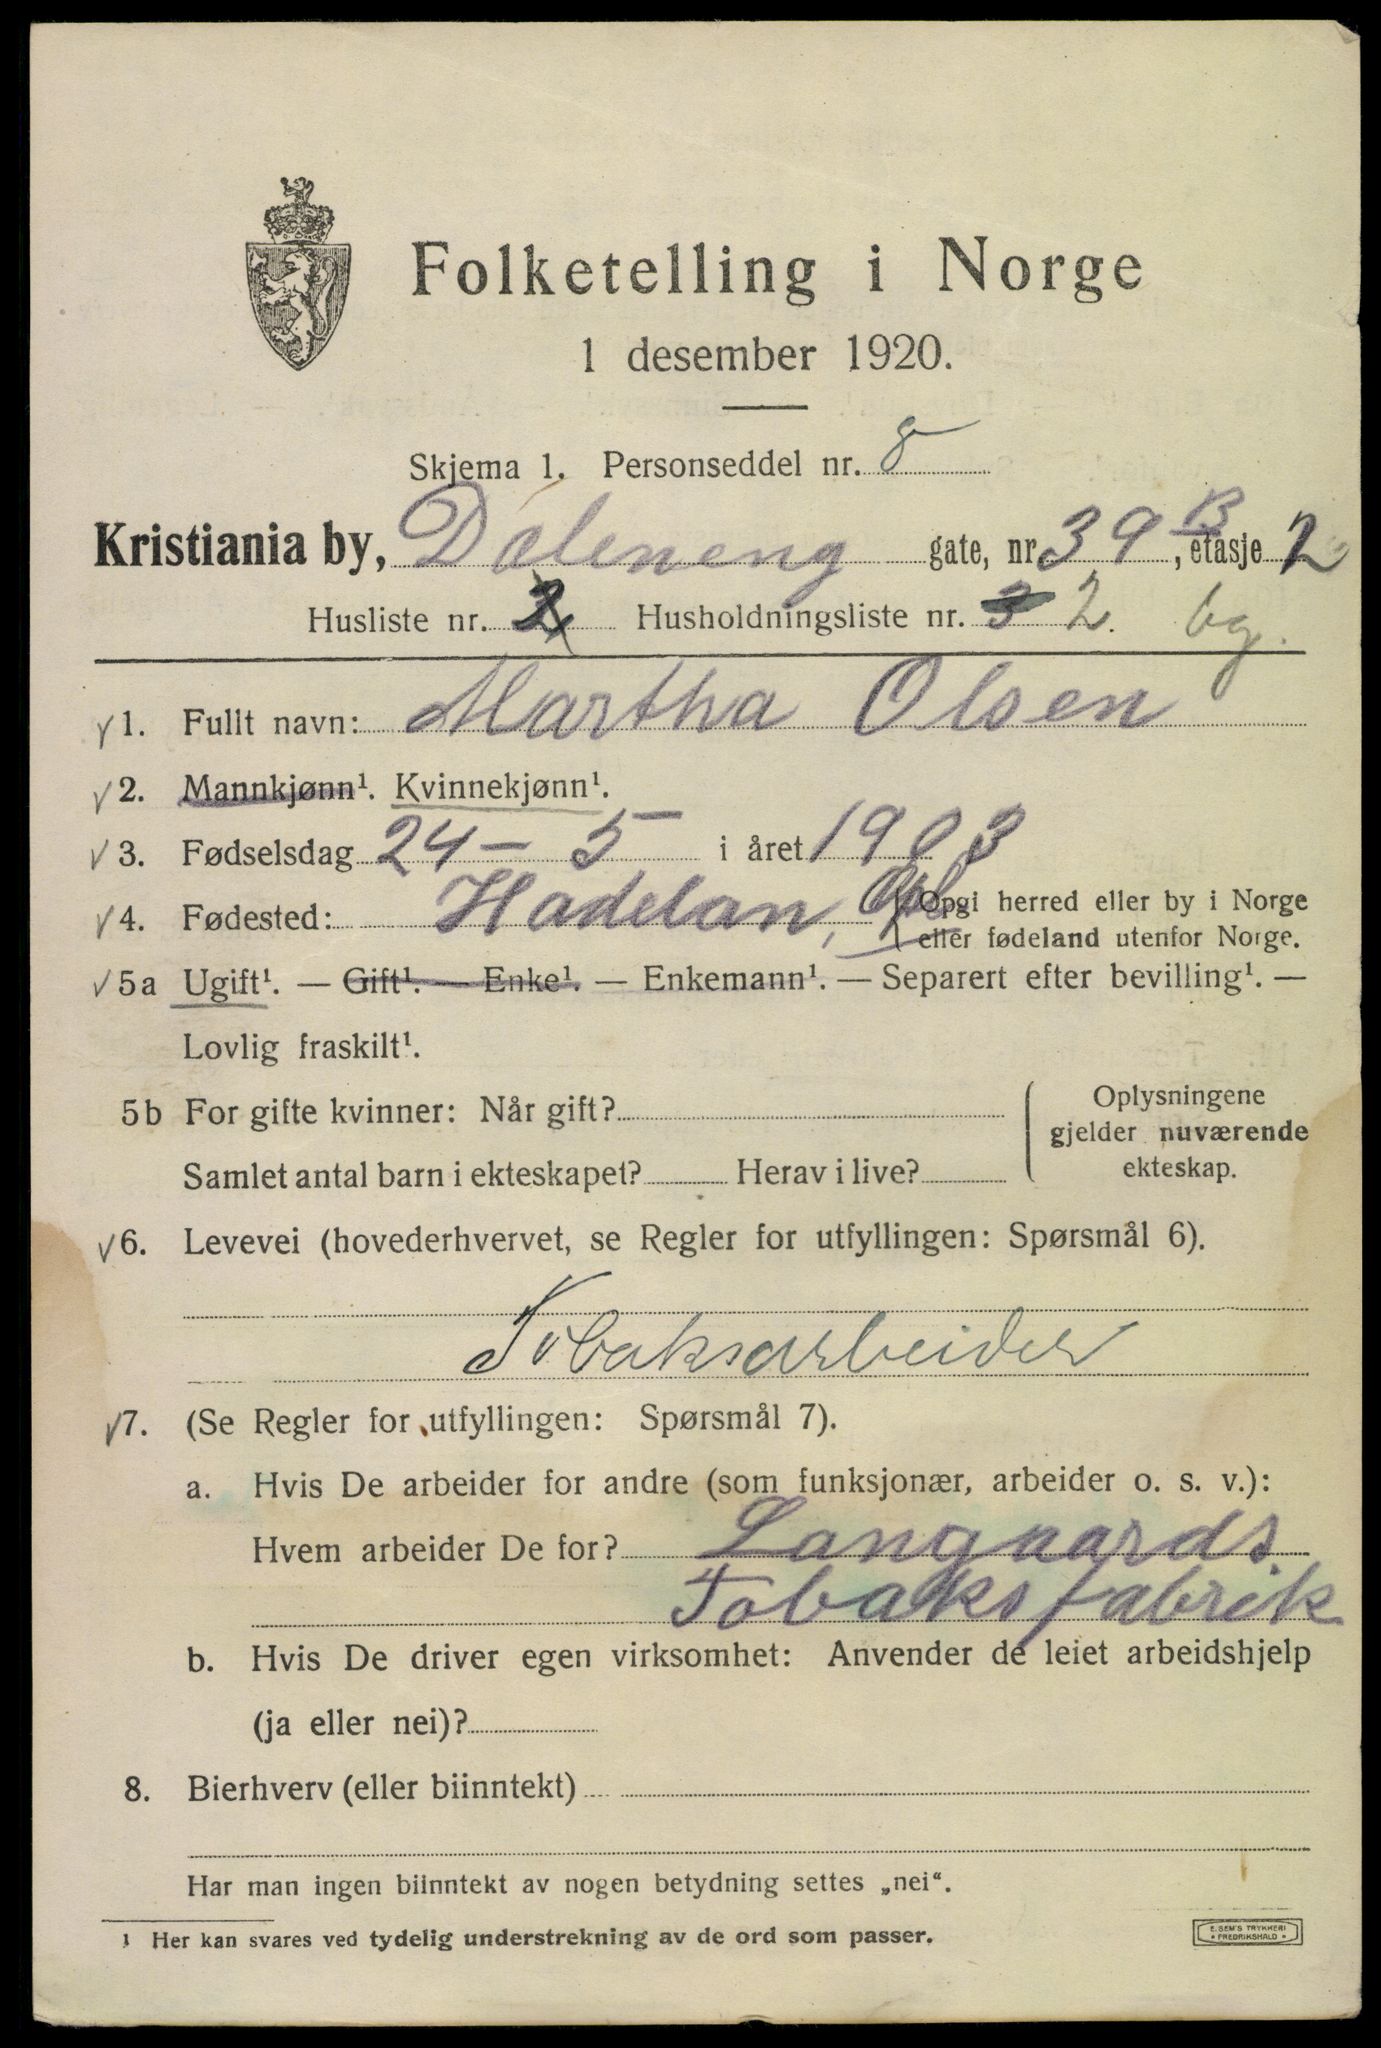 Folketelling i Norge
1 desember 1920.
Skjema 1. Personseddel nr. 8
Kristiania by, Daleneng gate, nr. 39 B, etasje 2
Husliste nr. 2 Husholdningsliste nr. 3 2. bg.
1. Fullt navn: Martha Olsen
2. Mannkjønn¹. Kvinnekjønn¹.
3. Fødselsdag 24 – 5 i året 1903
4. Fødested: Hadelan, Opl Opgi herred eller by i Norge
eller fødeland utenfor Norge.
5a Ugift¹. — Gift¹. — Enke¹. — Enkemann¹. — Separert efter bevilling¹. —
Lovlig fraskilt¹.
5b For gifte kvinner: Når gift? Oplysningene
gjelder nuværende
Samlet antal barn i ekteskapet? Herav i live? ekteskap.
6. Levevei (hovederhvervet, se Regler for utfyllingen: Spørsmål 6).
Tobaksarbeider
7. (Se Regler for utfyllingen: Spørsmål 7).
a. Hvis De arbeider for andre (som funksjonær, arbeider o. s. v.):
Hvem arbeider De for? Langaards
Tobaksfabrik
b. Hvis De driver egen virksomhet: Anvender de leiet arbeidshjelp
(ja eller nei)?
8. Bierhverv (eller biinntekt)
Har man ingen biinntekt av nogen betydning settes „nei“.
1 Her kan svares ved tydelig understrekning av de ord som passer.
E. SEM'S TRYKKERI
FREDRIKSHALD